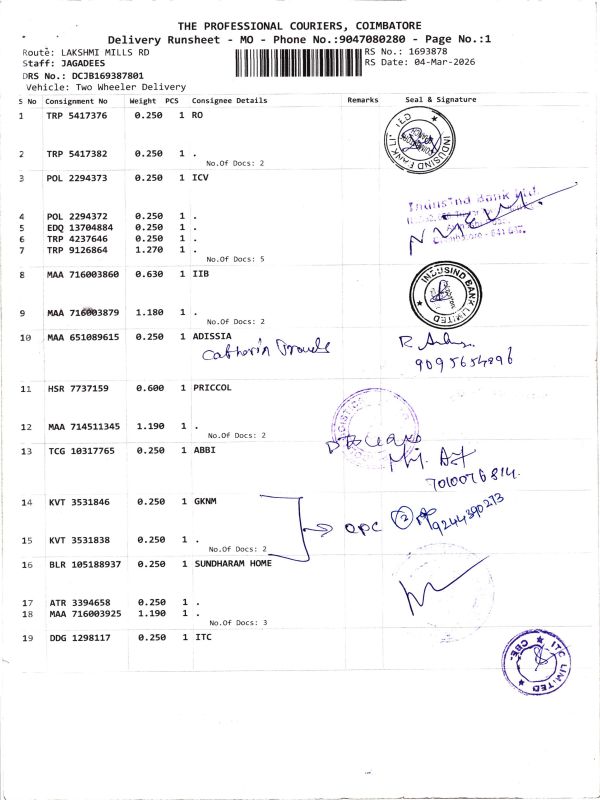 THE PROFESSIONAL COURIERS, COIMBATORE
Delivery Runsheet - MO - Phone No.:9047080280 - Page No.:1
Route: LAKSHMI MILLS RD
RS No.: 1693878
Staff: JAGADEES
RS Date: 04-Mar-2026
DRS No.: DCJB169387801
Vehicle: Two Wheeler Delivery
S No Consignment No Weight PCS Consignee Details Remarks Seal & Signature
1 TRP 5417376 0.250 1 RO
INDUSIND BANK LTD
2 TRP 5417382 0.250 1 .
No.Of Docs: 2
3 POL 2294373 0.250 1 ICV
IndusInd Bank Ltd.
4 POL 2294372 0.250 1 .
5 EDQ 13704884 0.250 1 .
6 TRP 4237646 0.250 1 .
7 TRP 9126864 1.270 1 .
No.Of Docs: 5
8 MAA 716003860 0.630 1 IIB
INDUSIND BANK LIMITED
9 MAA 716003879 1.180 1 .
No.Of Docs: 2
10 MAA 651089615 0.250 1 ADISSIA
9095654896
11 HSR 7737159 0.600 1 PRICCOL
12 MAA 714511345 1.190 1 .
No.Of Docs: 2
13 TCG 10317765 0.250 1 ABBI
7010076814
14 KVT 3531846 0.250 1 GKNM
OPC 2 9244390273
15 KVT 3531838 0.250 1 .
No.Of Docs: 2
16 BLR 105188937 0.250 1 SUNDHARAM HOME
17 ATR 3394658 0.250 1 .
18 MAA 716003925 1.190 1 .
No.Of Docs: 3
19 DDG 1298117 0.250 1 ITC
ITC LIMITED CBE-